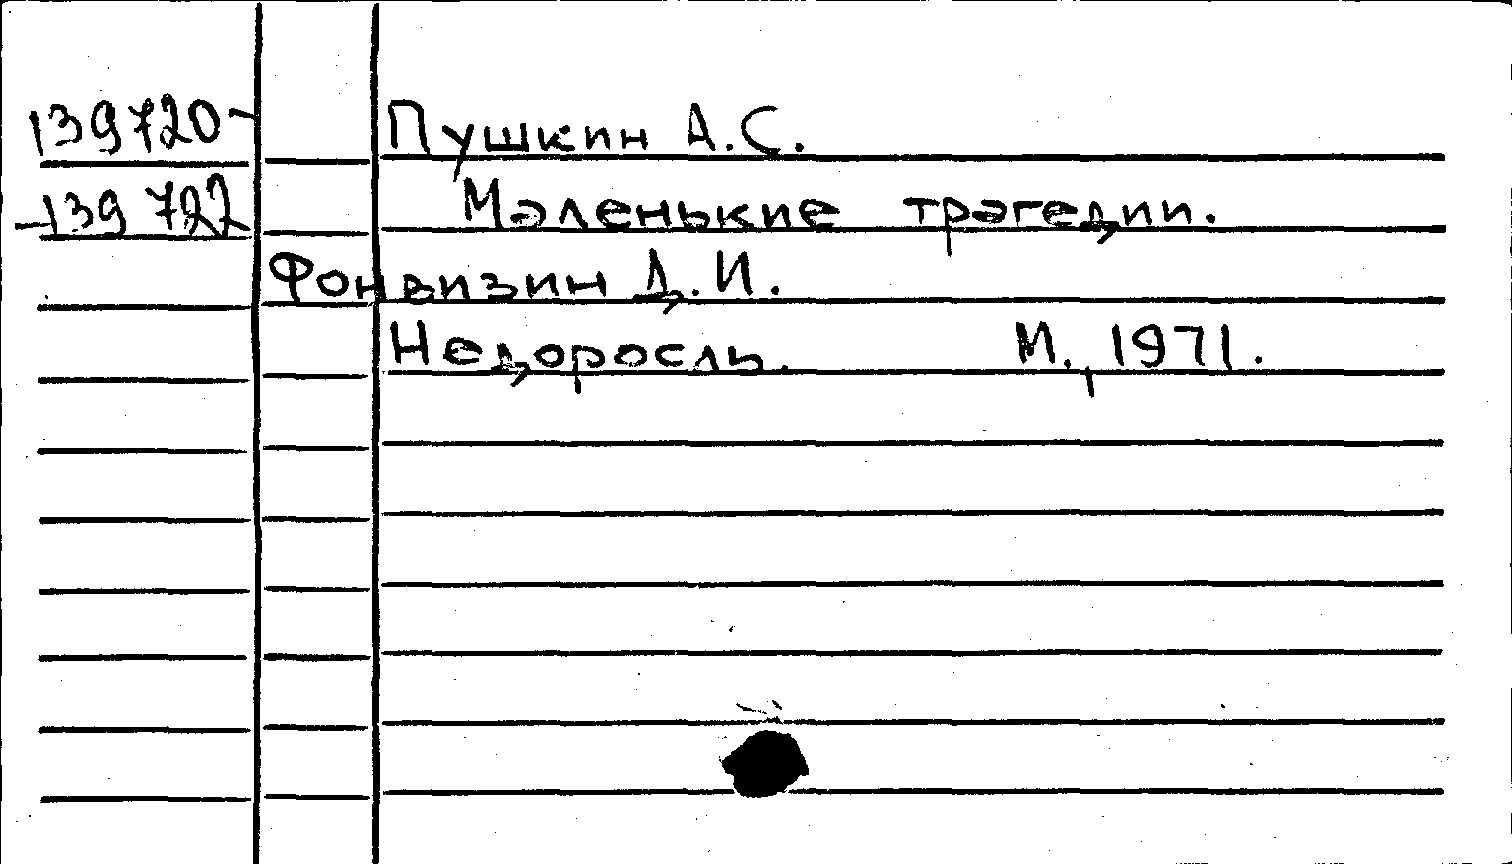 139720- Пушкин А.С.
-139722 Маленькие трагедии.
Фонвизин Д.И.
Недоросль. М., 1971.